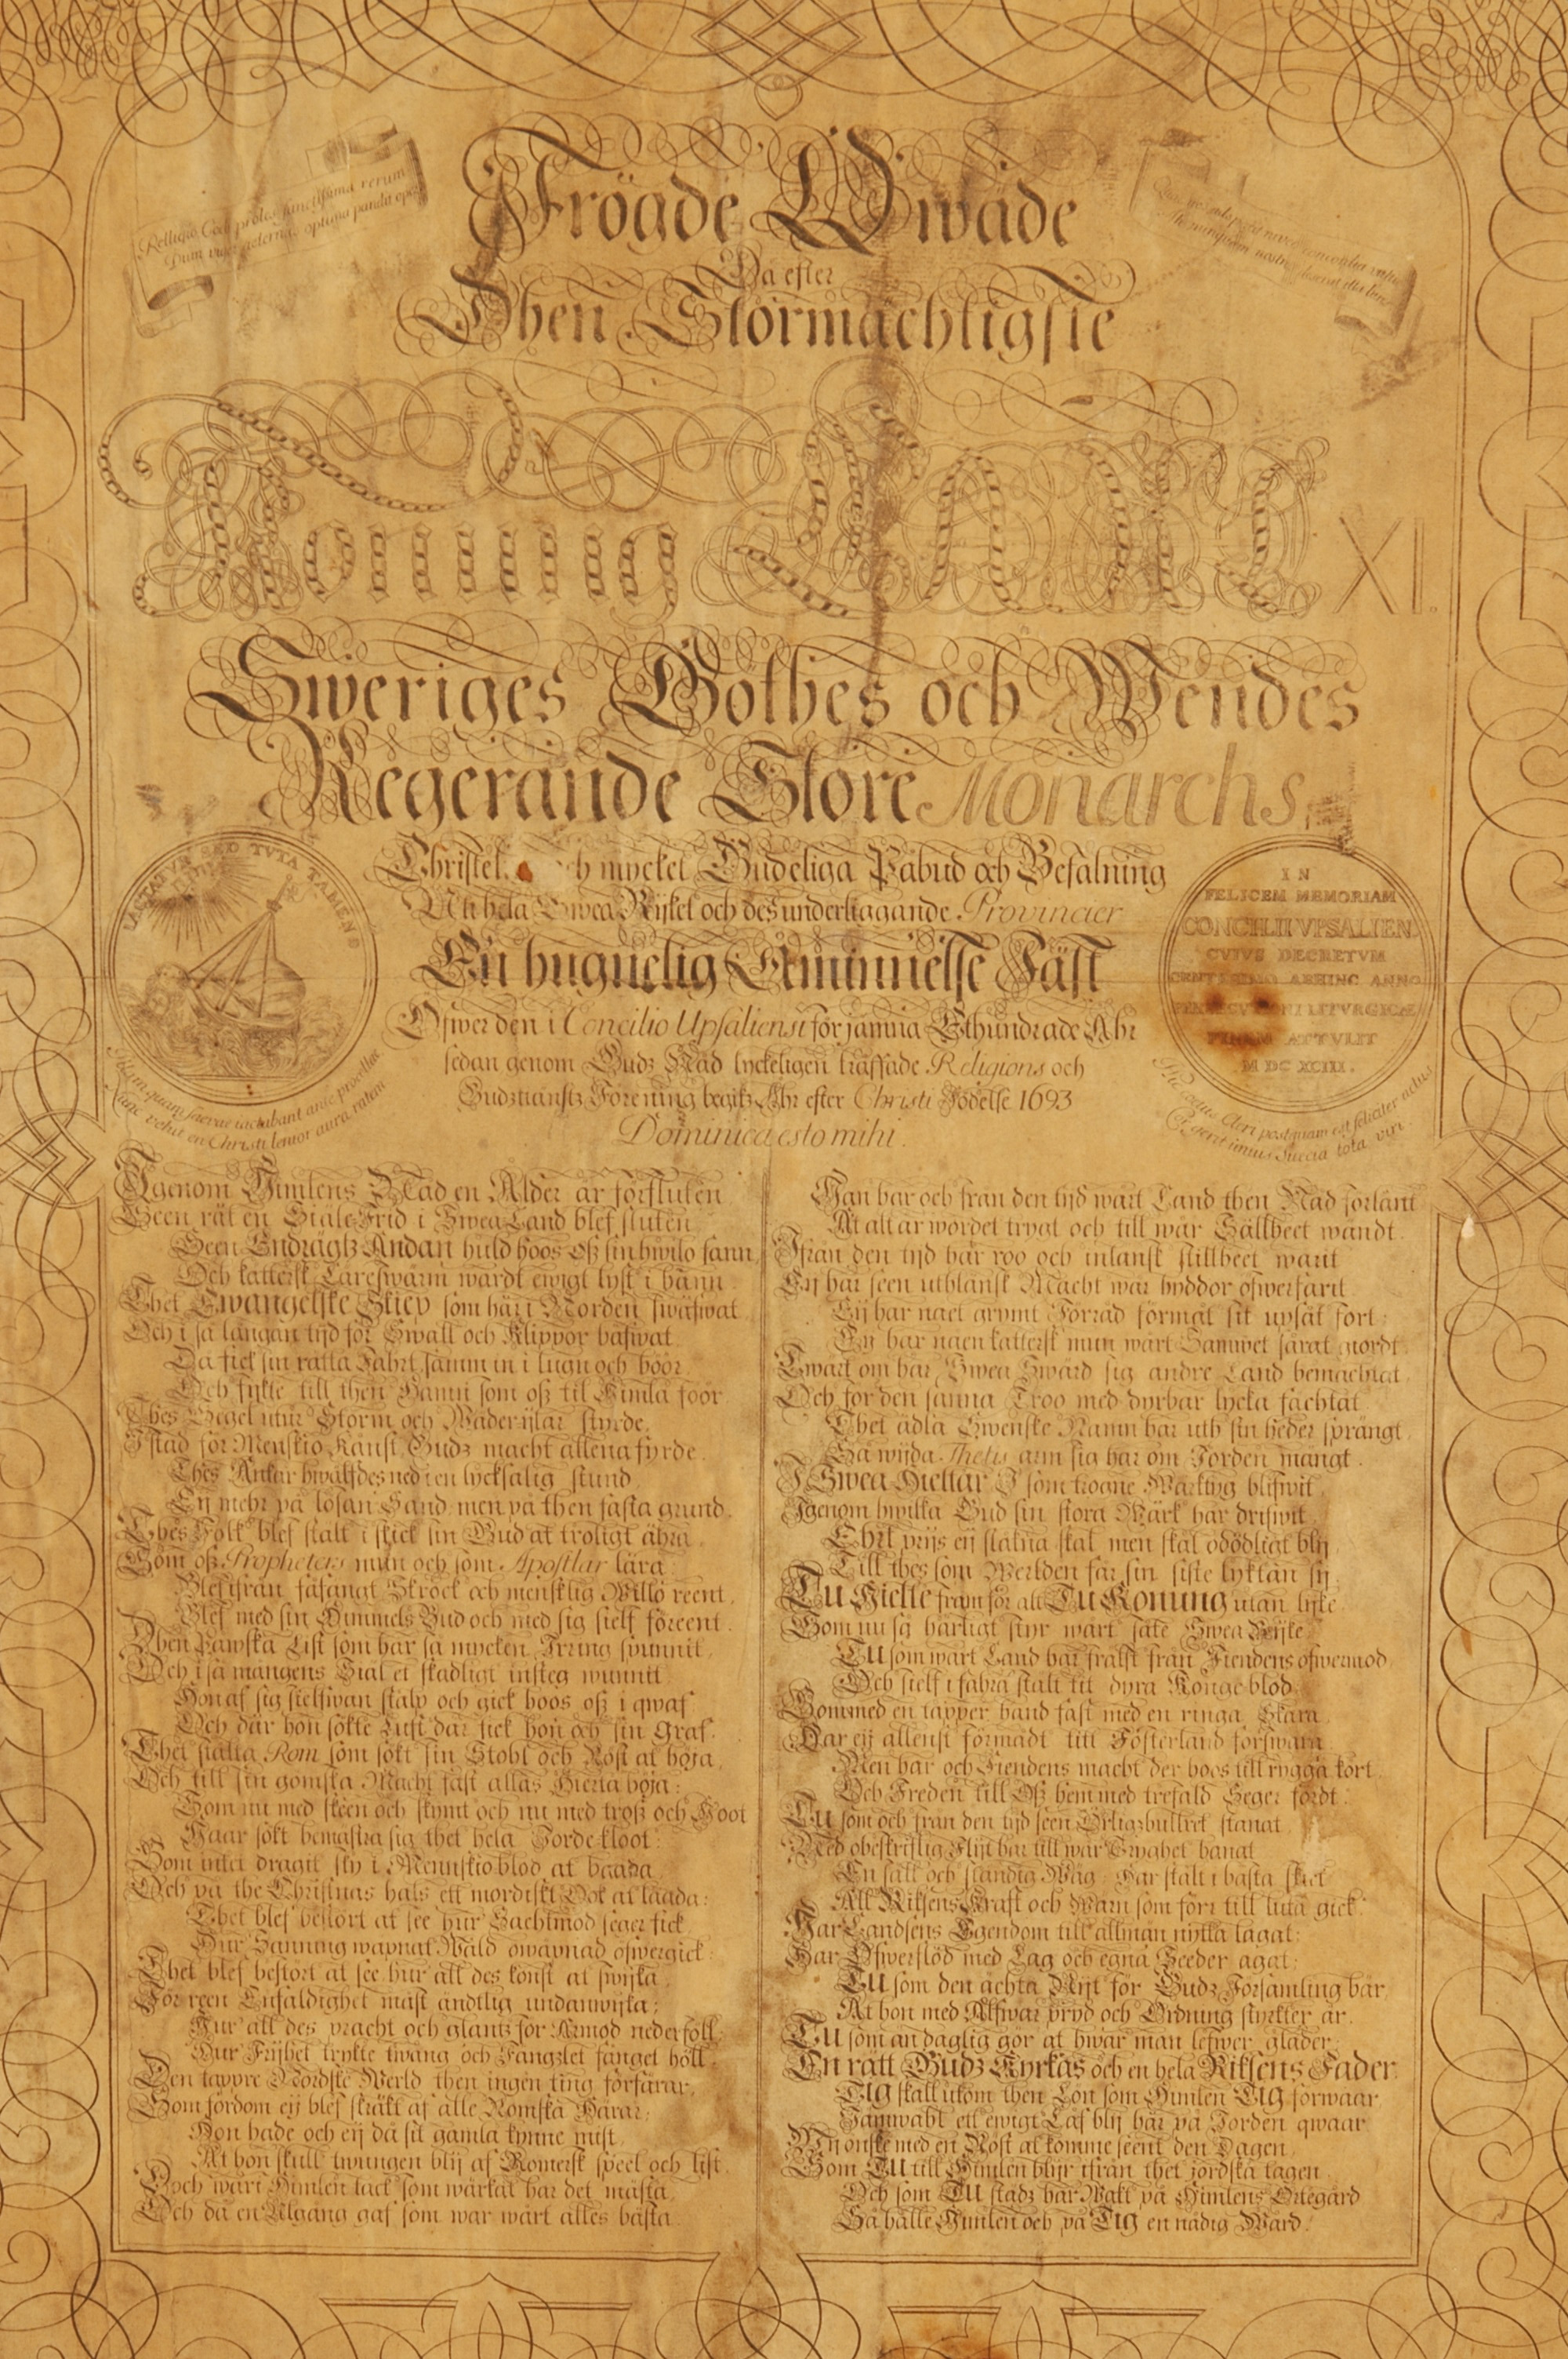 Relligio Coeli proles sanctissima rerum
Dum viget aeternas optima pandit opes
Fröÿade Qwäde
Då efter
Then Stormächtigste
Konung CARLS XI.
Sweriges Göthes och Wendes
Regerande Store Monarchs
Christel. och mycket Gudeliga Påbud och Befalning
Uti hela Swea Rÿket och des underliggande Provincier
En hugnelig Åminnelse Fäst
Ofwer den i Concilio Upsaliensi för jämna Ethundrade Åhr
sedan genom Gudz Nåd lyckeligen träffade Religions och
Gudztiänstz Förening begikz Åhr efter Christi Födelse 1693
Dominica esto mihi.
IACTATUR SED TUTA TAMEN
Quam saevae iactabant ante procellae
Hanc vehit en Christi lenior aura ratem
IN
FELICEM MEMORIAM
CONCILII UPSALIEN.
CVIVS DECRETVM
CENTESIMO ABHINC ANNO
LITVRGICAE
FINEM ATTVLIT
M DC XCIII.
Cleri postquam est feliciter
Suecia tota viri
Igenom Himlens Nåd en Ålder är förfluten
Seen rät en Siäle-Frid i Swea Land blef sluten
Seen Endrägtz Andan huld hoos Oss sin hwilo fann
Och kattersk Läreswärm wardt ewigt lyst i bann.
Thet Ewangelske Skiep som här i Norden swäfwat
Och i så långan tijd för Swall och Klippor bäfwat
Då fick sin rätta Fahrt samm in i lugn och höör
Och sykte till then Hamn som oss til Himla föör
Thes Segel utur Storm och Wäder-ijlar styrde
I stad för Menskio Känst Gudz macht allena fyrde.
Thes Ankar hwälfdes ned i en lycksalig stund
Eij mehr på lösan Sand men på then fasta grund.
Thes Folk blef stält i skick sin Gud at troligt ährä
Som oss Propheters mun och som Apostlar lära
Blef ifrån fäfängt Skrock och mensklig Willo reent
Blef med sin Himmels Gud och med sig sielf föreent.
Then Påwska List som har så mycken Irring spunnit
Och i så mångens Siäl et skadligt insteg wunnit
Hon af sig sielfwan stälp och gick hoos oss i qwaf
Och där hon sökte Lust där fick hon och sin Graf.
Thet stålta Rom som sökt sin Stohl och Röst at höja,
Och till sin gomska Macht fast allas Hierta böja:
Som nu med skeen och skymt och nu med tross och Hoot
Haar sökt bemästra sig thet hela Jorde-kloot:
Som intet dragit sky i Menniskio blod at baada
Och på the Christnas hals ett mordiskt Ook at laada:
Thet blef bestört at see hur Sachtmod seger fick
Hur Sanning wapnat Wåld owapnad öfwergick:
Thet blef bestört at see hur all des konst at swijka
För reen Enfaldighet måst ändtlig undanwijka:
Hur all des pracht och glantz för Armod nederföll
Hur Frijhet trykte twång och Fängzlet fånget höll
Den tappre Nordske Werld then ingen ting förfärar,
Som fordom eij blef skräkt af alle Romska Härar:
Hon hade och eij då sit gamla kynne mist
At hon skull twungen blij af Romersk speel och list.
Doch wari Himlen tack som wärkat har det mästa
Och då en Utgång gaf som war wårt alles bästa.
Han har och från den tijd wårt Land then Nåd förlänt
At alt är wordet trygt och till wår Sällheet wändt.
Ifrån den tijd här roo och inlänsk stillheet warit
Eij har seen uthlänsk Macht wår hyddor öfwerfarit
Eij har nået grymt Förräd förmåt sit upsåt fort:
Eij har någen kattersk mun wårt Samwet sårat giordt.
Twärt om har Swea Swärd sig andre Land bemächtigt
Och for den sanna Troo med dyrbar lycka fächtat
Thet ädla Swenske Namn har uth sin heder sprängt
Så wijda Thetis arm sig har om Jorden mängt.
I Swea Hieltar I som trogne Wärktyg blifwit
Igenom hwilka Gud sin stora Wärk har drifwit
Ehrt prijs eij slätna skal men skal odödligt blij
Till thes som Werlden får sin siste lyktan sij
TU Hielte fram för alt TU Konung utan lijke
Som nu så härligt styr wårt säte Swea Rijke
TU som wårt Land har frälst från Fiendens öfwermod
Och sielf i fahra stält tit dyra Konge-blod
Som med en tapper hand fast med en ringa Skara
Har eij allenst förmådt titt Fosterland förswara
Men har och Fiendens macht der hoos till rygga kört
Och Freden till Oss hem med trefald Seger fördt:
TU som och från den tijd seen Orligzbullret stanat
Med obeskriflig Flijt har till wår Trygheet banat
En säll och ständig Wäg: Har stält i bästa skick
All Riksens Kraft och Warn som förr till luta gick:
Har Landsens Egendom till allmän nytta lagat:
Har Öfwerflöd med Lag och egna Seeder agat:
TU som den ächta Nijt för Gudz Församling bär
At hon med Alfwar pryd och Ordning styrkter är.
TU som än daglig gör at hwar man lefwer gläder:
En rätt Gudz Kyrkas och en hela Riksens Fader:
TIG skall utom then Lön som Himlen TIG förwaar
Samwäht ett ewigt Låf blij här på Jorden qwaar
Wij önske med en Röst at komme seent den Dagen
Som TU till Himlen blijr ifrån thet jordska tagen
Och som TU städz har Wakt på Himlens Örtegård
Så hålle Himlen och på TIG en nådig Wård.